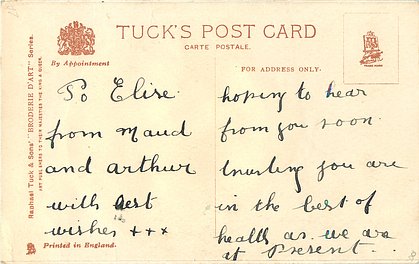 TUCK'S POST CARD
CARTE POSTALE.
By Appointment
FOR ADDRESS ONLY.
Raphael Tuck & Sons' "BRODERIE D'ART" Series.
ART PUBLISHERS TO THEIR MAJESTIES THE KING & QUEEN.
TRADE MARK
To Elise.
from Maud
and arthur
with best
wishes +++
hoping to hear
from you soon.
trusting you are
in the best of
health as we are
at Present.
Printed in England.